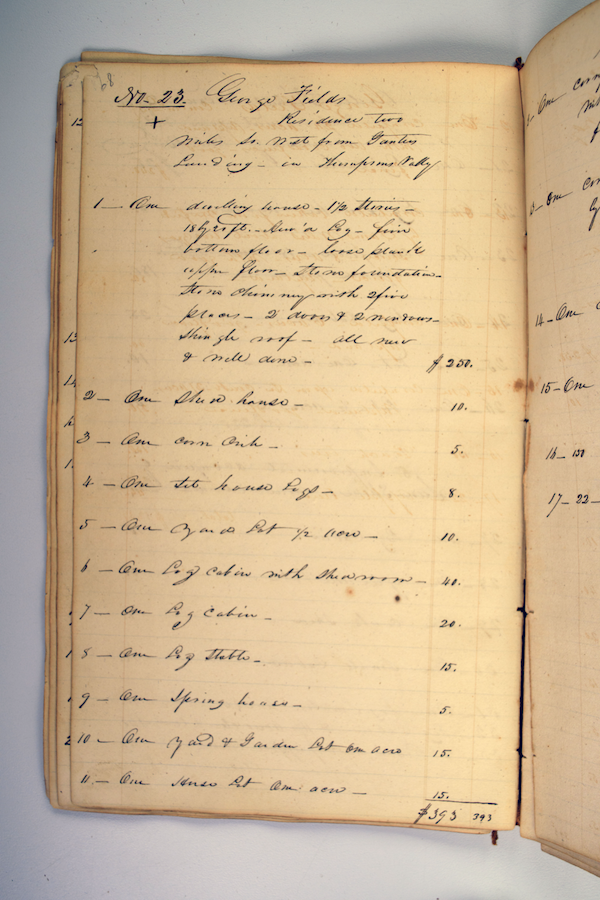 68
No. 23. George Fields
+ Residence two
miles So. West from Gunters
Landing - in Thompsons Vally
1 - One dwelling house - 1½ Stories -
18 by 20 ft. - Hew'd Log - fine
bottom floor - loose plank
upper floor - Stone foundation -
Stone chimney with 2 fire
places - 2 doors & 2 windows -
Shingle roof - all new
& well done - $250.
2 - One Shed house - 10.
3 - One corn Crib - 5.
4 - One Set house Logs - 8.
5 - One Yard Lot ½ acre - 10.
6 - One Log cabin with Shed room - 40.
7 - One Log Cabin - 20.
8 - One Log Stable - 15.
9 - One Spring house - 5.
10 - One Yard & Garden Lot One acre 15.
11. - One Horse Lot One acre - 15.
$393 393
One corn
One con
14 - One
15 - One
16 - 130
17 - 22 -